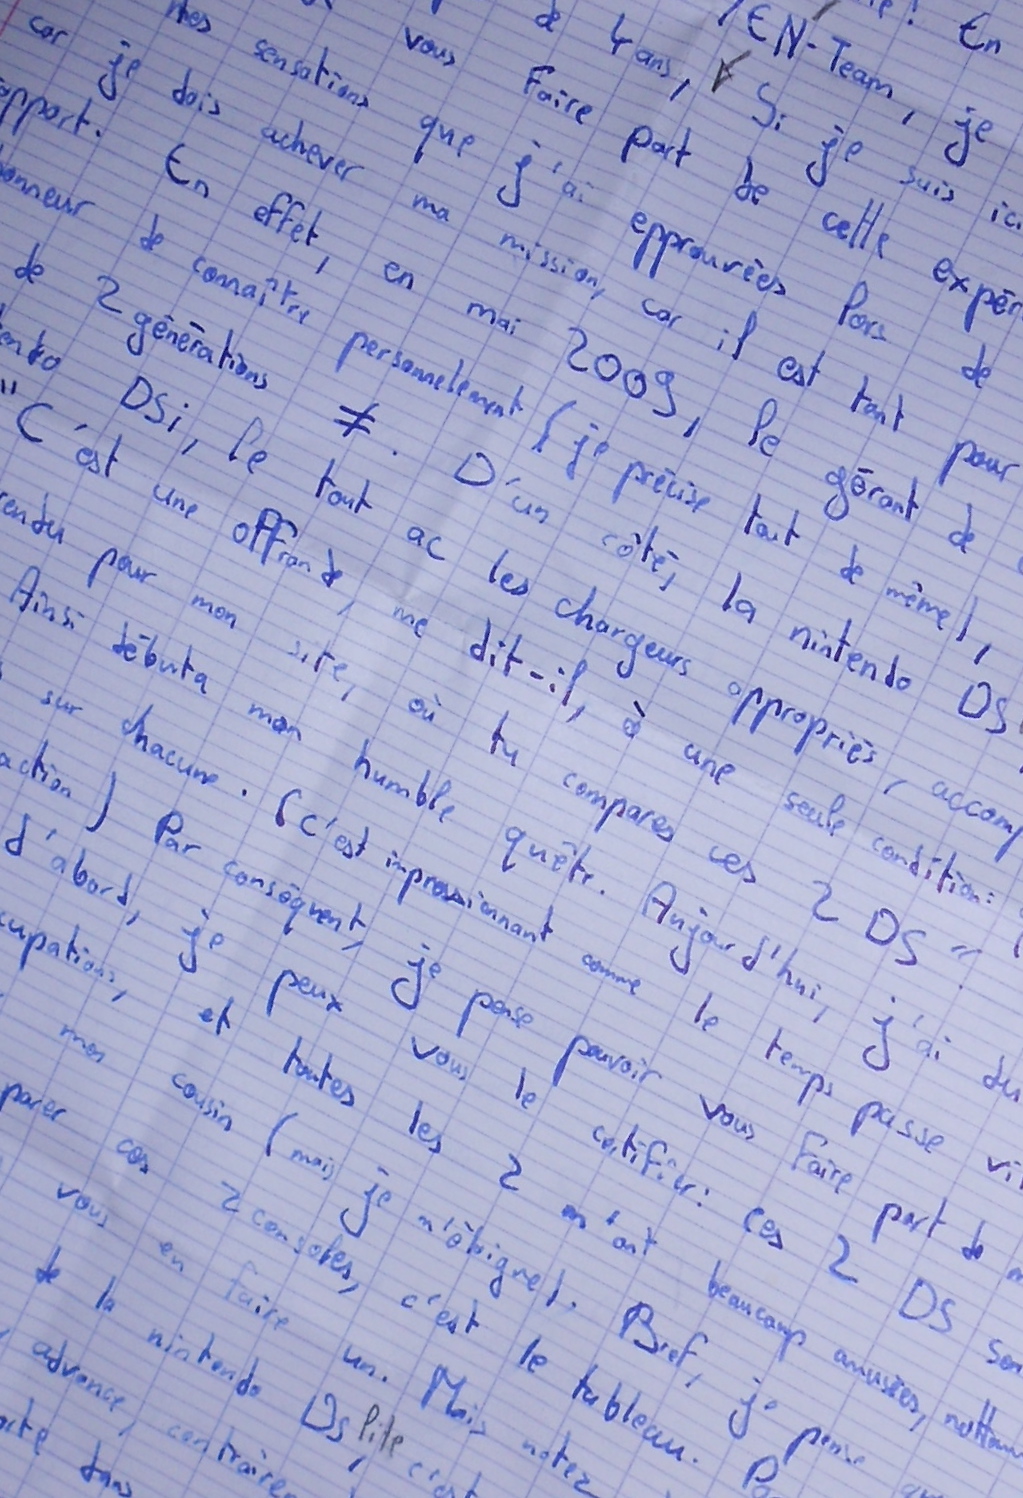 ! En
EN-Team, je
de 4 ans, Si je suis ici
vous Faire part de cette expér
mes sensations que j'ai epprouvées lors de
car je dois achever ma mission, car il est tant pour
apport. En effet, en mai 2009, le gérant de
honneur de connaître personnelement (je précise tout de même),
de 2 générations ≠. D'un côté, la nintendo DS
tendo DSi, le tout ac les chargeurs appropriés, accomp
"C'est une offrande, me dit-il, à une seule condition:
rendu pour mon site, où tu compares ces 2 DS".
Ainsi débuta mon humble quête. Aujourd'hui, j'ai du
s sur chacune. (c'est impressionnant comme le temps passe vi
action) Par conséquent, je pense pouvoir vous Faire part de m
d'abord, je peux vous le certifier: ces 2 DS son
cupations, et toutes les 2 m'ont beaucoup amusées, nottam
mon cousin (mais je m'éloigne). Bref, je pense que
parer ces 2 consoles, c'est le tableau. Po
vous en faire un. Mais notez
de la nintendo DS lite, c'est
advance, contrairem
orte dans